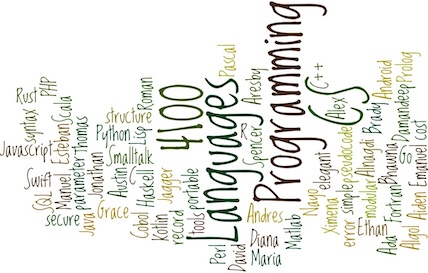 Rust
PHP
syntax
Scala
JavaScript
Esteban
thomas
Swift
Manuel
parameter
Jonathan
SQL
secure
Java
Grace
structure
Roman
Python
Lisp
Smalltalk
Austin
Haskell
Jagger
Cobol
Kotlin
record
tools
portable
4100
Languages
Pascal
Aresby
R
Spencer
Perl
David
Andres
Diana
Maria
Programming
CS
C++
Alex
Matlab
Nayo
elegant
Ximena
error
simple
pseudocode
Brady
Android
modular
Alnardi
Ethan
Ada
Fortran
Bhuwna
Go
Damandeep
Prolog
Algol
Aiden
Emanuel
Cost